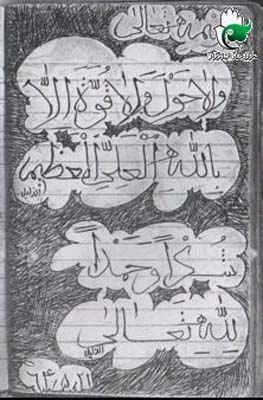 بسمه تعالی
وَلا حَوْلَ وَلا قُوَّةَ اِلاّ
بِاللهِ الْعَلِیِّ الْعَظیمِ
شُکْراً وَ حَمْداً
لِلّهِ تَعالی